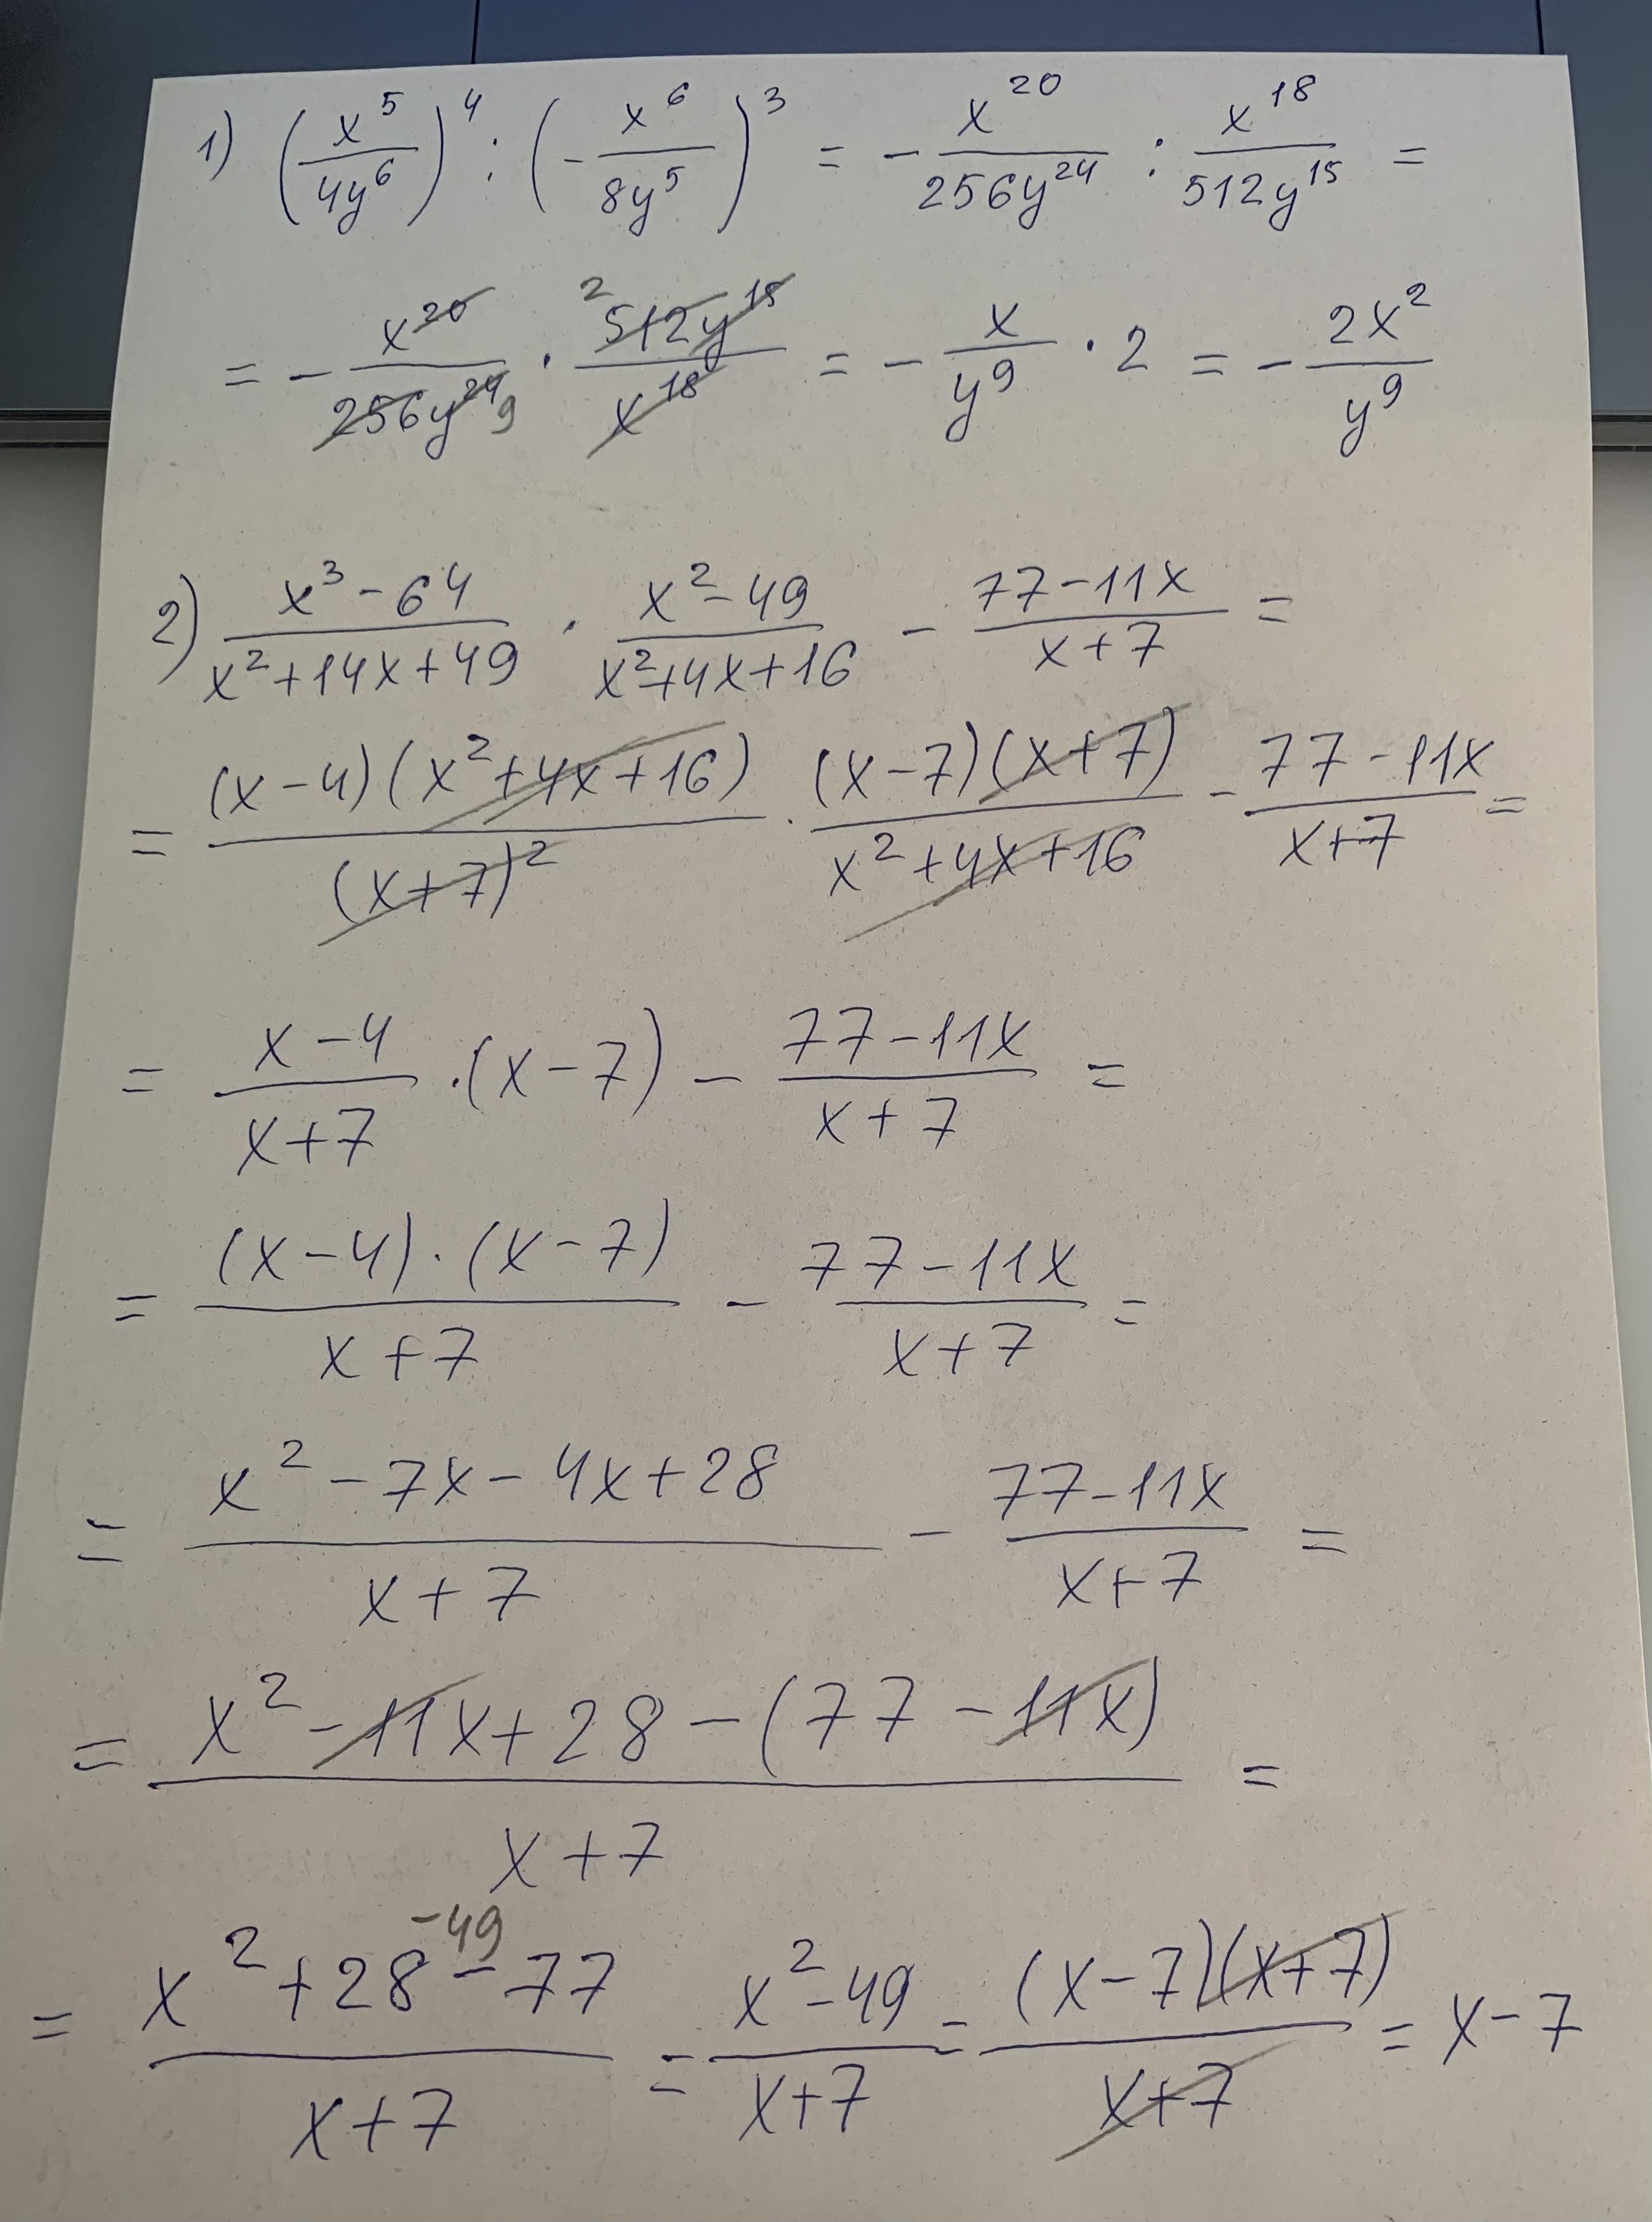 1) (x⁵/4y⁶)⁴ : (-x⁶/8y⁵)³ = - x²⁰/256y²⁴ : x¹⁸/512y¹⁵ =
= - x²⁰/256y²⁴ 9 · 2 512y¹⁵/x¹⁸ = - x/y⁹ · 2 = - 2x²/y⁹
2) (x³-64)/(x²+14x+49) · (x²-49)/(x²+4x+16) - (77-11x)/(x+7) =
= (x-4)(x²+4x+16)/(x+7)² · (x-7)(x+7)/(x²+4x+16) - (77-11x)/(x+7) =
= (x-4)/(x+7) · (x-7) - (77-11x)/(x+7) =
= (x-4)·(x-7)/(x+7) - (77-11x)/(x+7) =
= (x²-7x-4x+28)/(x+7) - (77-11x)/(x+7) =
= (x²-11x+28-(77-11x))/(x+7) =
-49
= (x²+28-77)/(x+7) = (x²-49)/(x+7) = (x-7)(x+7)/(x+7) = x-7